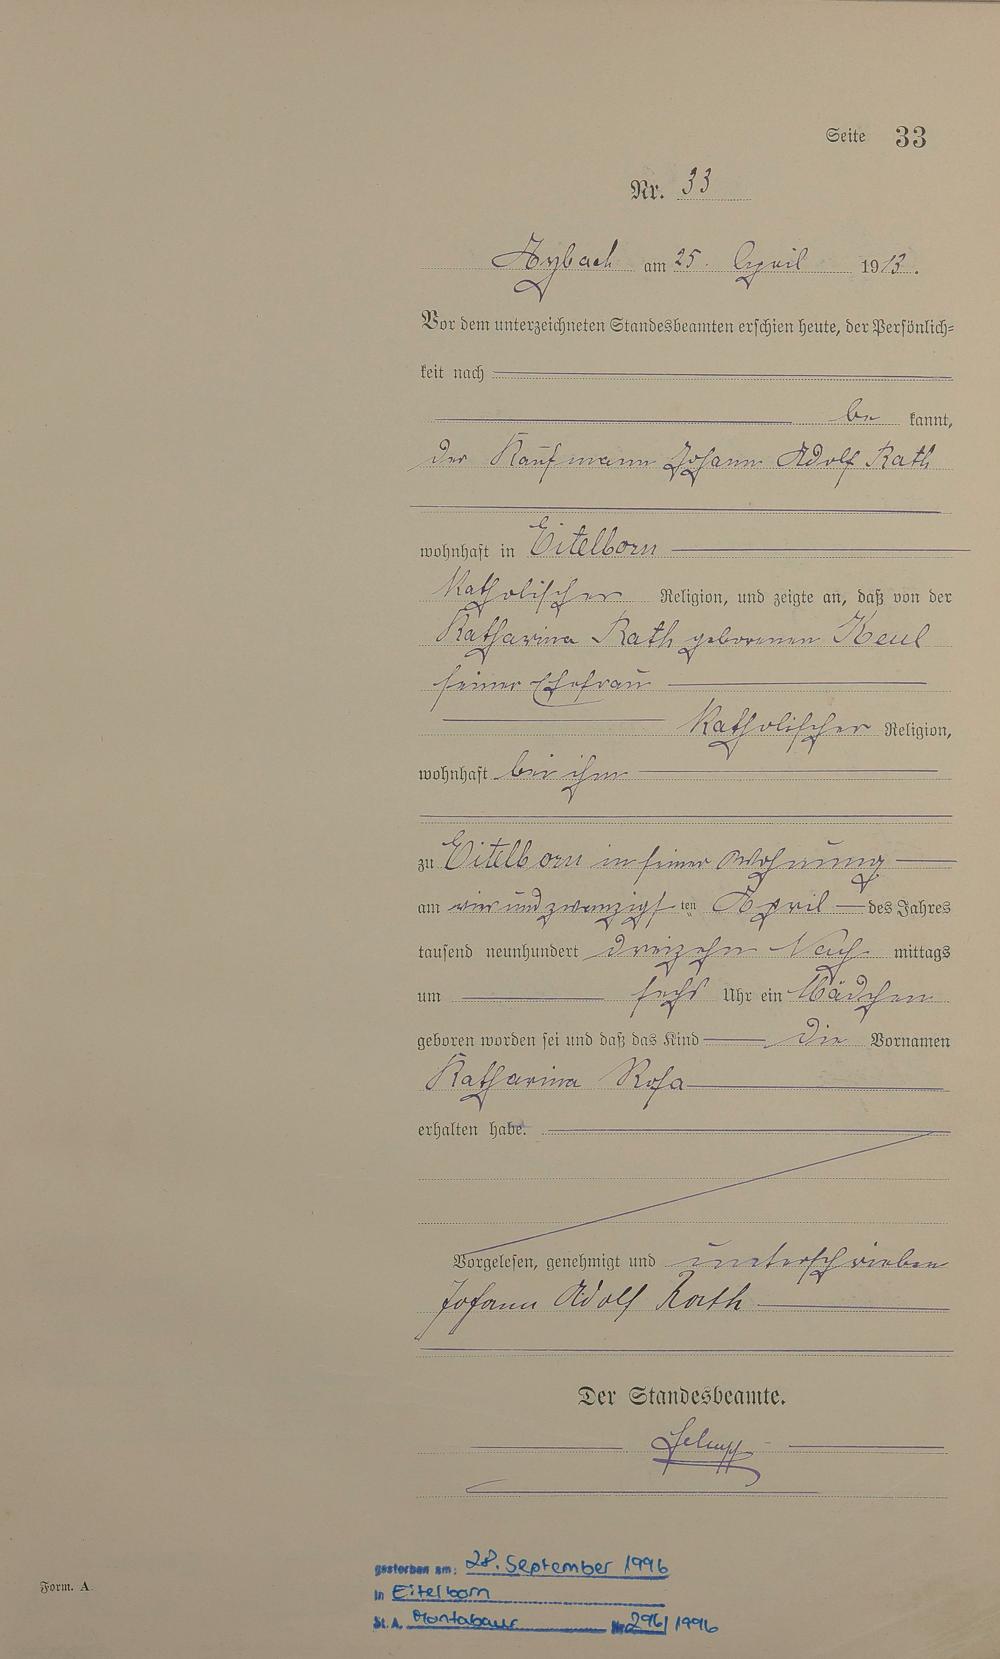 Seite 33
Nr. 33
Arzbach am 25. April 1913.
Vor dem unterzeichneten Standesbeamten erschien heute, der Persönlich=
keit nach
be kannt,
der Kaufmann Johann Adolf Rath
wohnhaft in Eitelborn
Katholischer Religion, und zeigte an, daß von der
Katharina Rath geborenen Keul
seiner Ehefrau
Katholischer Religion,
wohnhaft bei ihm
zu Eitelborn in seiner Wohnung
am vier und zwanzigst ten April des Jahres
tausend neunhundert dreizehn Nach mittags
um sechs Uhr ein Mädchen
geboren worden sei und daß das Kind die Vornamen
Katharina Rosa
erhalten habe.
Vorgelesen, genehmigt und unterschrieben
Johann Adolf Rath
Der Standesbeamte.
gestorben am: 28. September 1996
in Eitelborn
St. A. Montabaur Nr. 296/1996
Form. A.